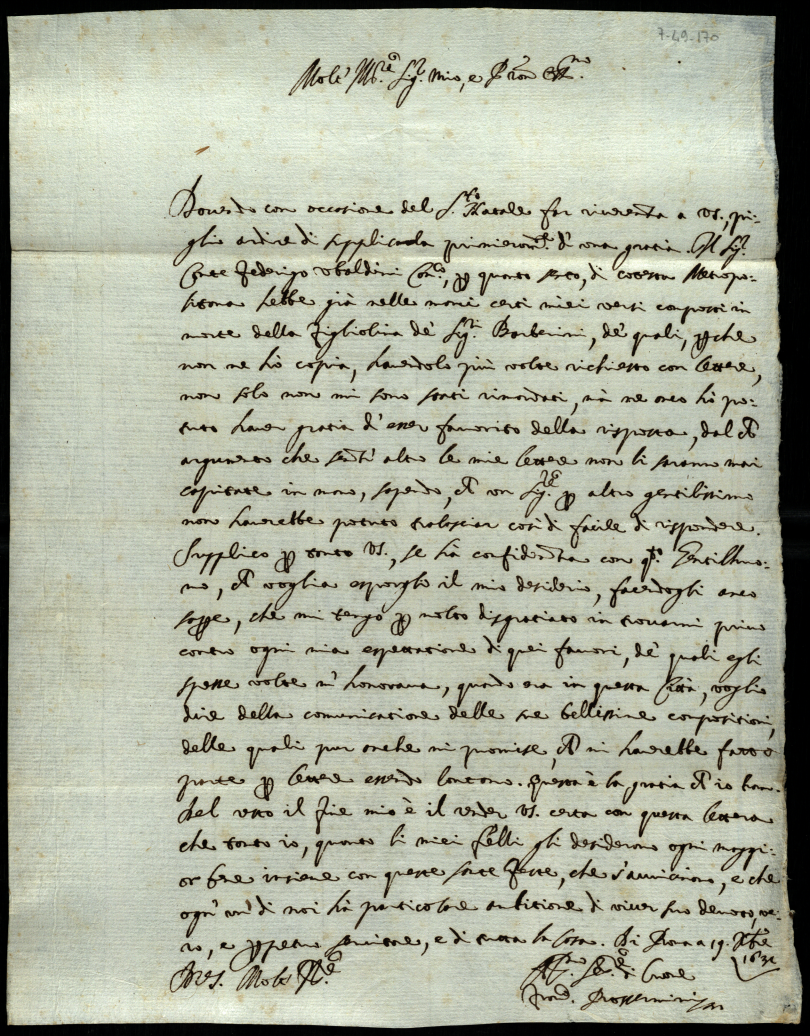 7-49-170
Molt' Ill.re Sig.r mio, e P'ron Oss.mo
Dovendo con occasione del S.to Natale far riverenza a VS., pi-
glio ardire di supplicarla primieram.te d'una gratia. Il Sig.r
Conte Federigo Ubaldini Can.co, p quanto sento, di cotesta Metropo-
litana hebbe già nelle mani certi miei versi composti in
morte della Figliolina de' Sig.ri Barberini, de' quali, pche
non ne hò copia, havendolo più volte richiesto con lettere,
non solo non mi sono stati rimandati, mà ne anco hò po-
tuto haver gratia d'esser favorito della risposta, dal ch'
argumento che senz'altro le mie lettere non li saranno mai
capitate in mano, sapendo, ch' un Sig.re p altro gentilissimo
non haverebbe potuto tralasciar così di facile di rispondere.
Supplico p tanto VS., se hà confidenza con q.to Gentilhuo-
mo, ch' voglia esporgli il mio desiderio, facendogli anco
sape, che mi tengo p molto disgratiato in trovarmi privo
contro ogni mia espettatione di quei favori, de' quali egli
spesse volte m'honorava, quando era in questa Città, voglio
dire della comunicatione delle sue bellissime compositioni,
delle quali pur anche mi promise, ch' mi haverebbe fatto
parte p lettere essendo lontano. Questa è la gratia ch' io bramo.
Del resto il fine mio è il render VS. certa con questa lettera
che tanto io, quanto li miei f'elli gli desiderano ogni maggi-
or bene insieme con queste sante feste, che s'avvicinano, e che
ogn' un' di noi hà particolare ambitione di viver suo devoto, ve-
ro, e ppetuo servitore, e di tutta la Casa. Di Roma 19. Xbre
1632
Di VS. Molt' Ill.re
Aff.mo Se.re di Cuore